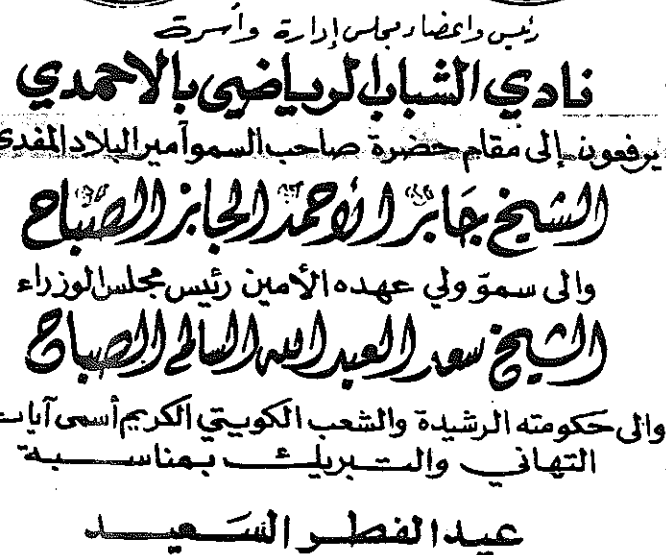 رئيس وأعضاء مجلس إدارة وأسرة
نادي الشباب الرياضي بالاحمدي
يرفعون إلى مقام حضرة صاحب السمو أمير البلاد المفدى
الشيخ جابر الأحمد الجابر الصباح
والى سمو ولي عهده الأمين رئيس مجلس الوزراء
الشيخ سعد العبد الله السالم الصباح
والى حكومته الرشيدة والشعب الكويتي الكريم أسمى آيات
التهاني والتبريك بمناسبة
عيد الفطر السعيد